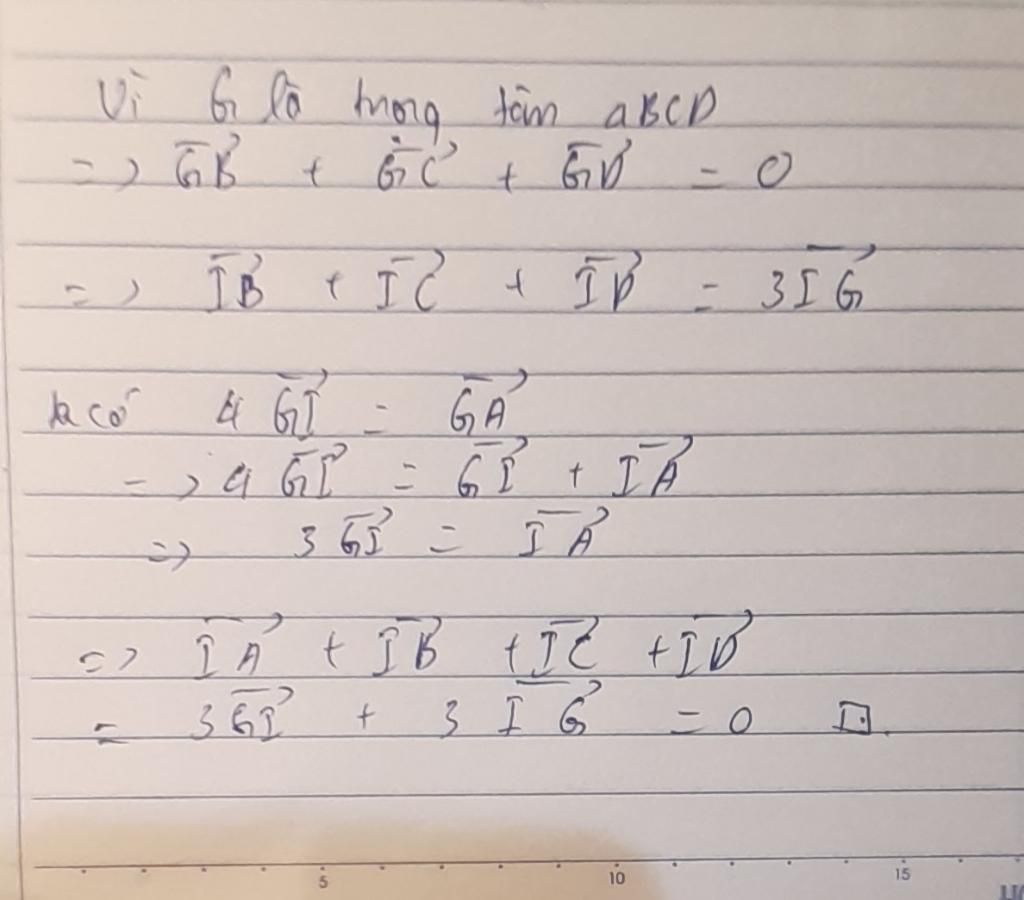 Vì G là trong tâm aBCD
=> \overrightarrow{GB} + \overrightarrow{GC} + \overrightarrow{GD} = 0
=> \overrightarrow{IB} + \overrightarrow{IC} + \overrightarrow{ID} = 3\overrightarrow{IG}
ta có 4\overrightarrow{GI} = \overrightarrow{GA}
=> 4\overrightarrow{GI} = \overrightarrow{GI} + \overrightarrow{IA}
=> 3\overrightarrow{GI} = \overrightarrow{IA}
=> \overrightarrow{IA} + \overrightarrow{IB} + \overrightarrow{IC} + \overrightarrow{ID}
= 3\overrightarrow{GI} + 3\overrightarrow{IG} = 0 □.
5 10 15